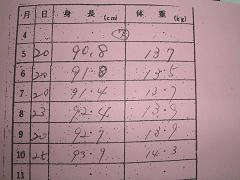 月 日 身長(cm) 体重(kg)
4
5 20 90.8 13.7
6 20 91.8 13.5
7 20 91.4 13.7
8 23 92.4 13.9
9 20 92.9 13.9
10 25 93.9 14.3
11